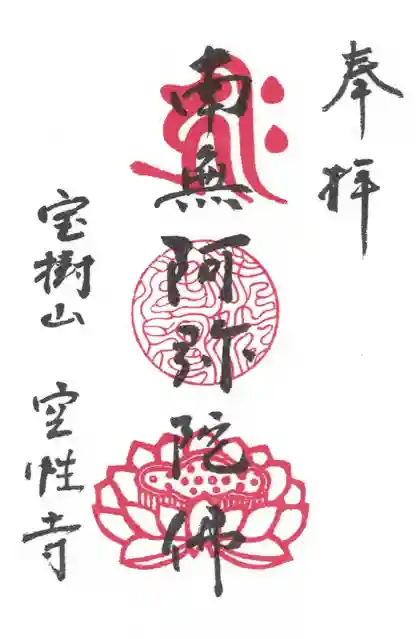 奉拝
南無阿弥陀佛
宝樹山 空性寺